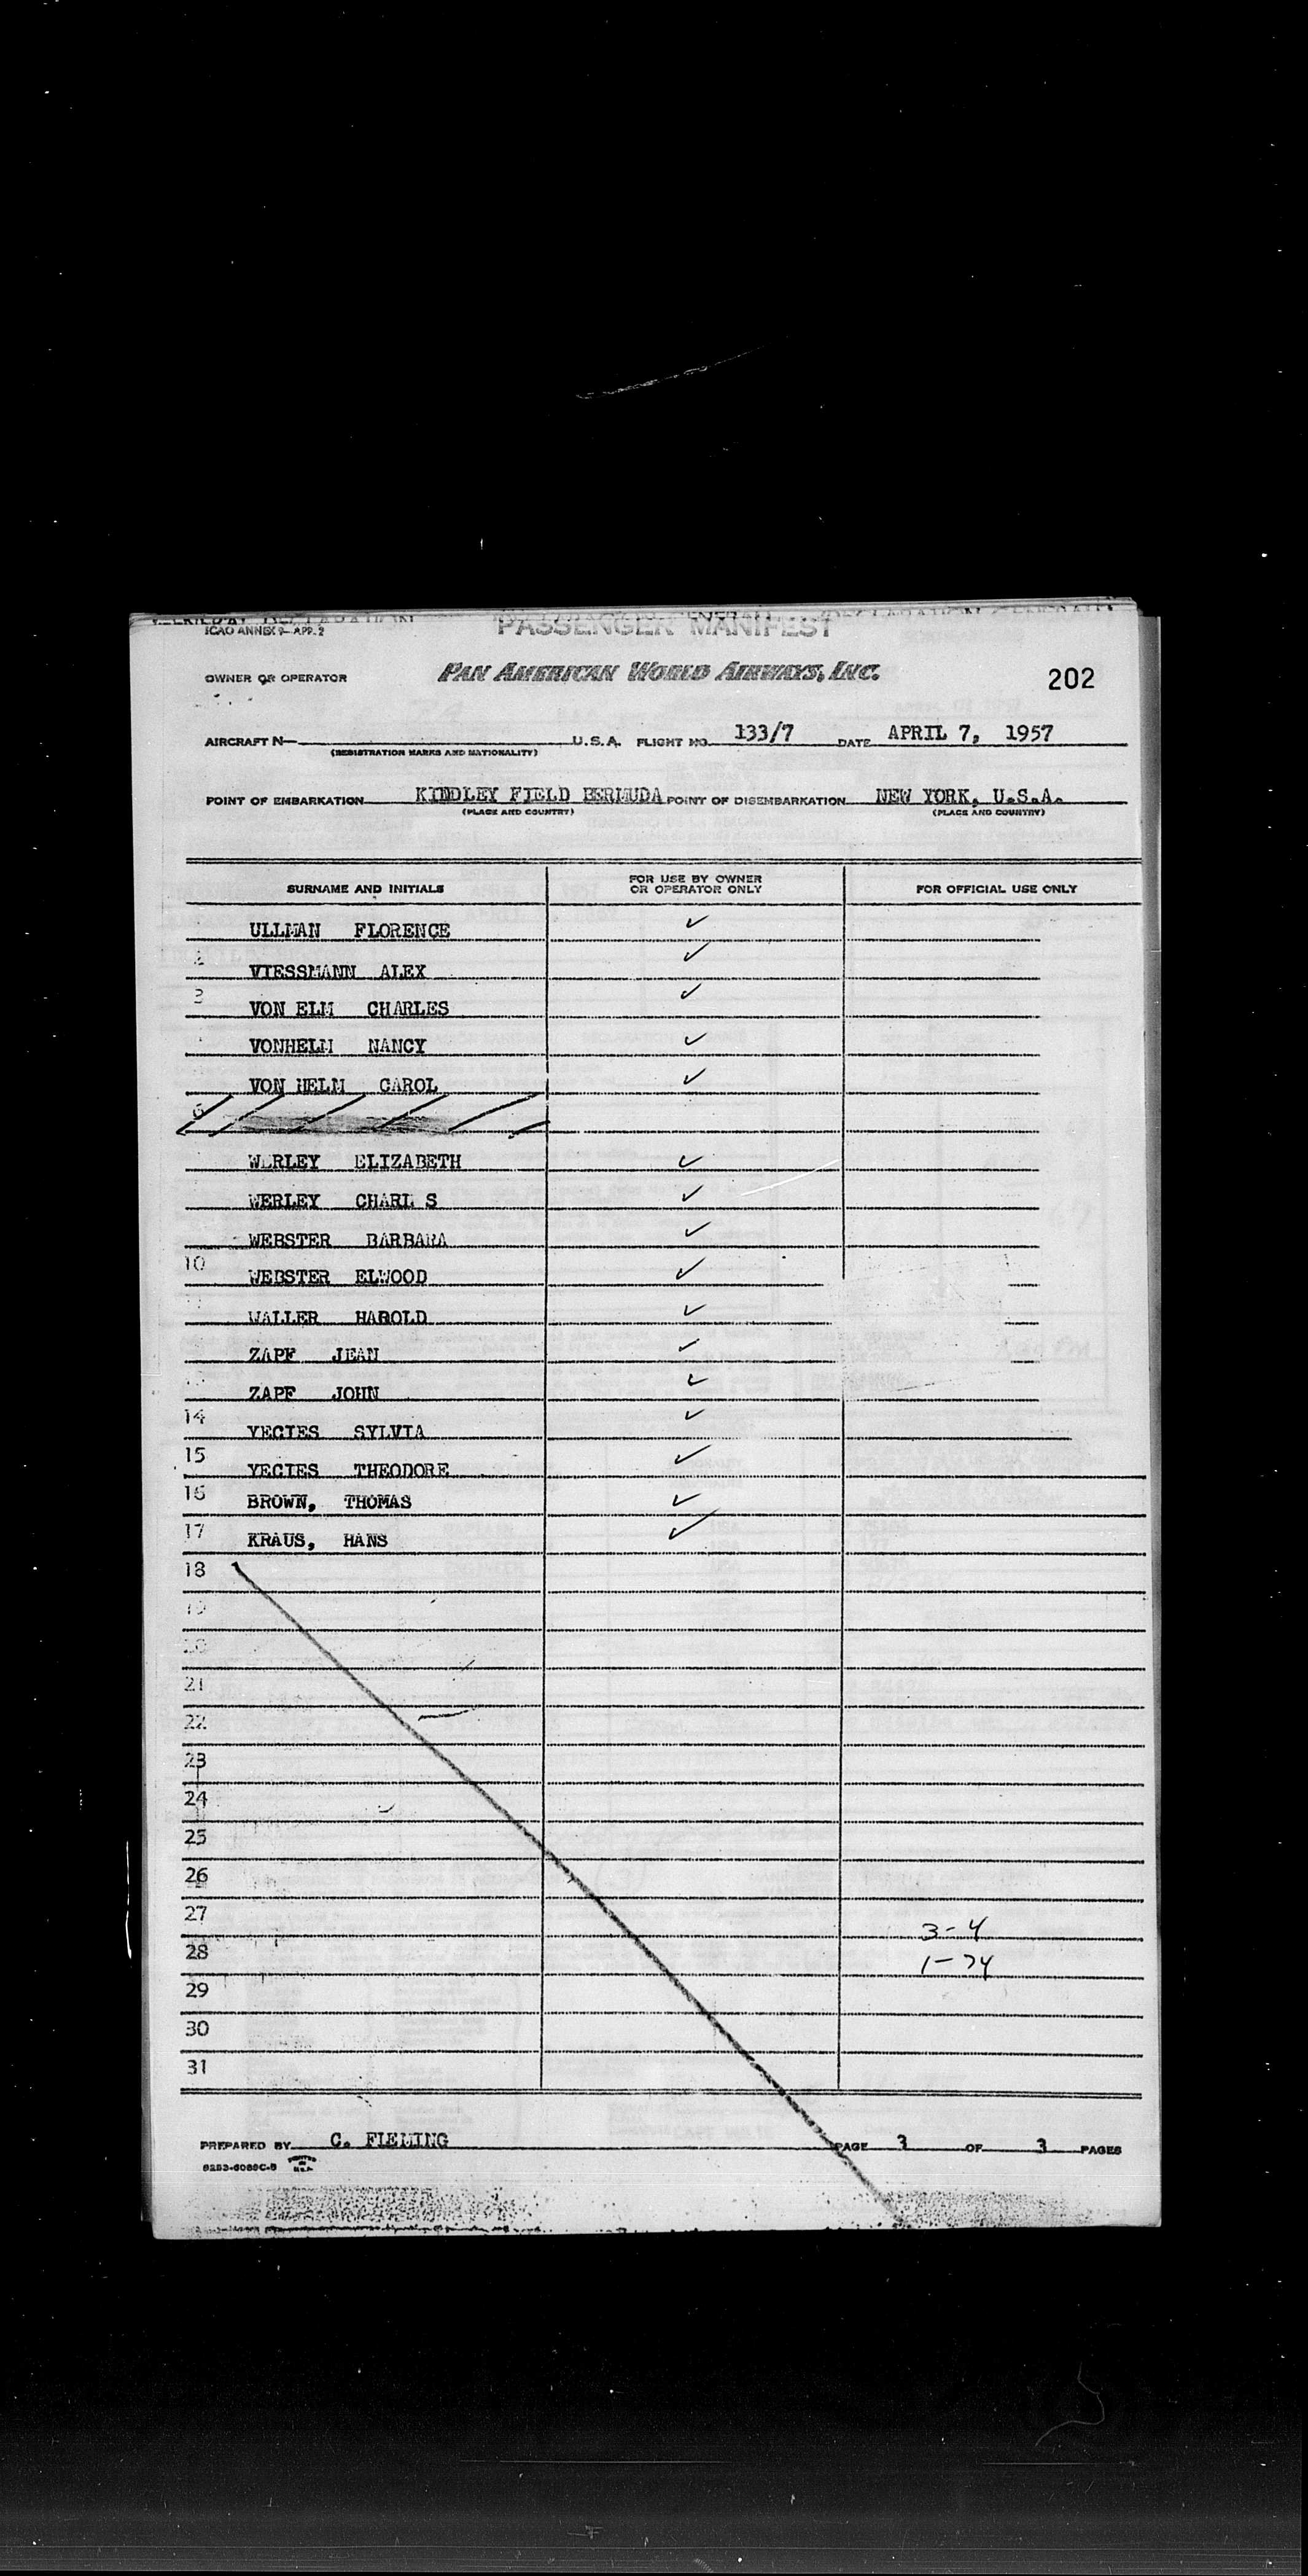 ICAO ANNEX 9— APP. 2
PASSENGER MANIFEST
OWNER OR OPERATOR PAN AMERICAN WORLD AIRWAYS, INC. 202
AIRCRAFT N— U.S.A. FLIGHT NO. 133/7 DATE APRIL 7, 1957
(REGISTRATION MARKS AND NATIONALITY)
POINT OF EMBARKATION KINDLEY FIELD BERMUDA POINT OF DISEMBARKATION NEW YORK, U.S.A.
(PLACE AND COUNTRY) (PLACE AND COUNTRY)
SURNAME AND INITIALS FOR USE BY OWNER OR OPERATOR ONLY FOR OFFICIAL USE ONLY
ULLMAN FLORENCE ✓
2 VIESSMANN ALEX ✓
3 VON ELM CHARLES ✓
VONHELM NANCY ✓
VON HELM CAROL ✓
6
WERLEY ELIZABETH ✓
WERLEY CHARL S ✓
WEBSTER BARBARA ✓
10 WEBSTER ELWOOD ✓
WALLER HAROLD ✓
ZAPF JEAN ✓
ZAPF JOHN ✓
14 YECIES SYLVIA ✓
15 YECIES THEODORE ✓
16 BROWN, THOMAS ✓
17 KRAUS, HANS ✓
18
19
20
21
22
23
24
25
26
27 3-4
28 1-74
29
30
31
PREPARED BY C. FLEMING PAGE 3 OF 3 PAGES